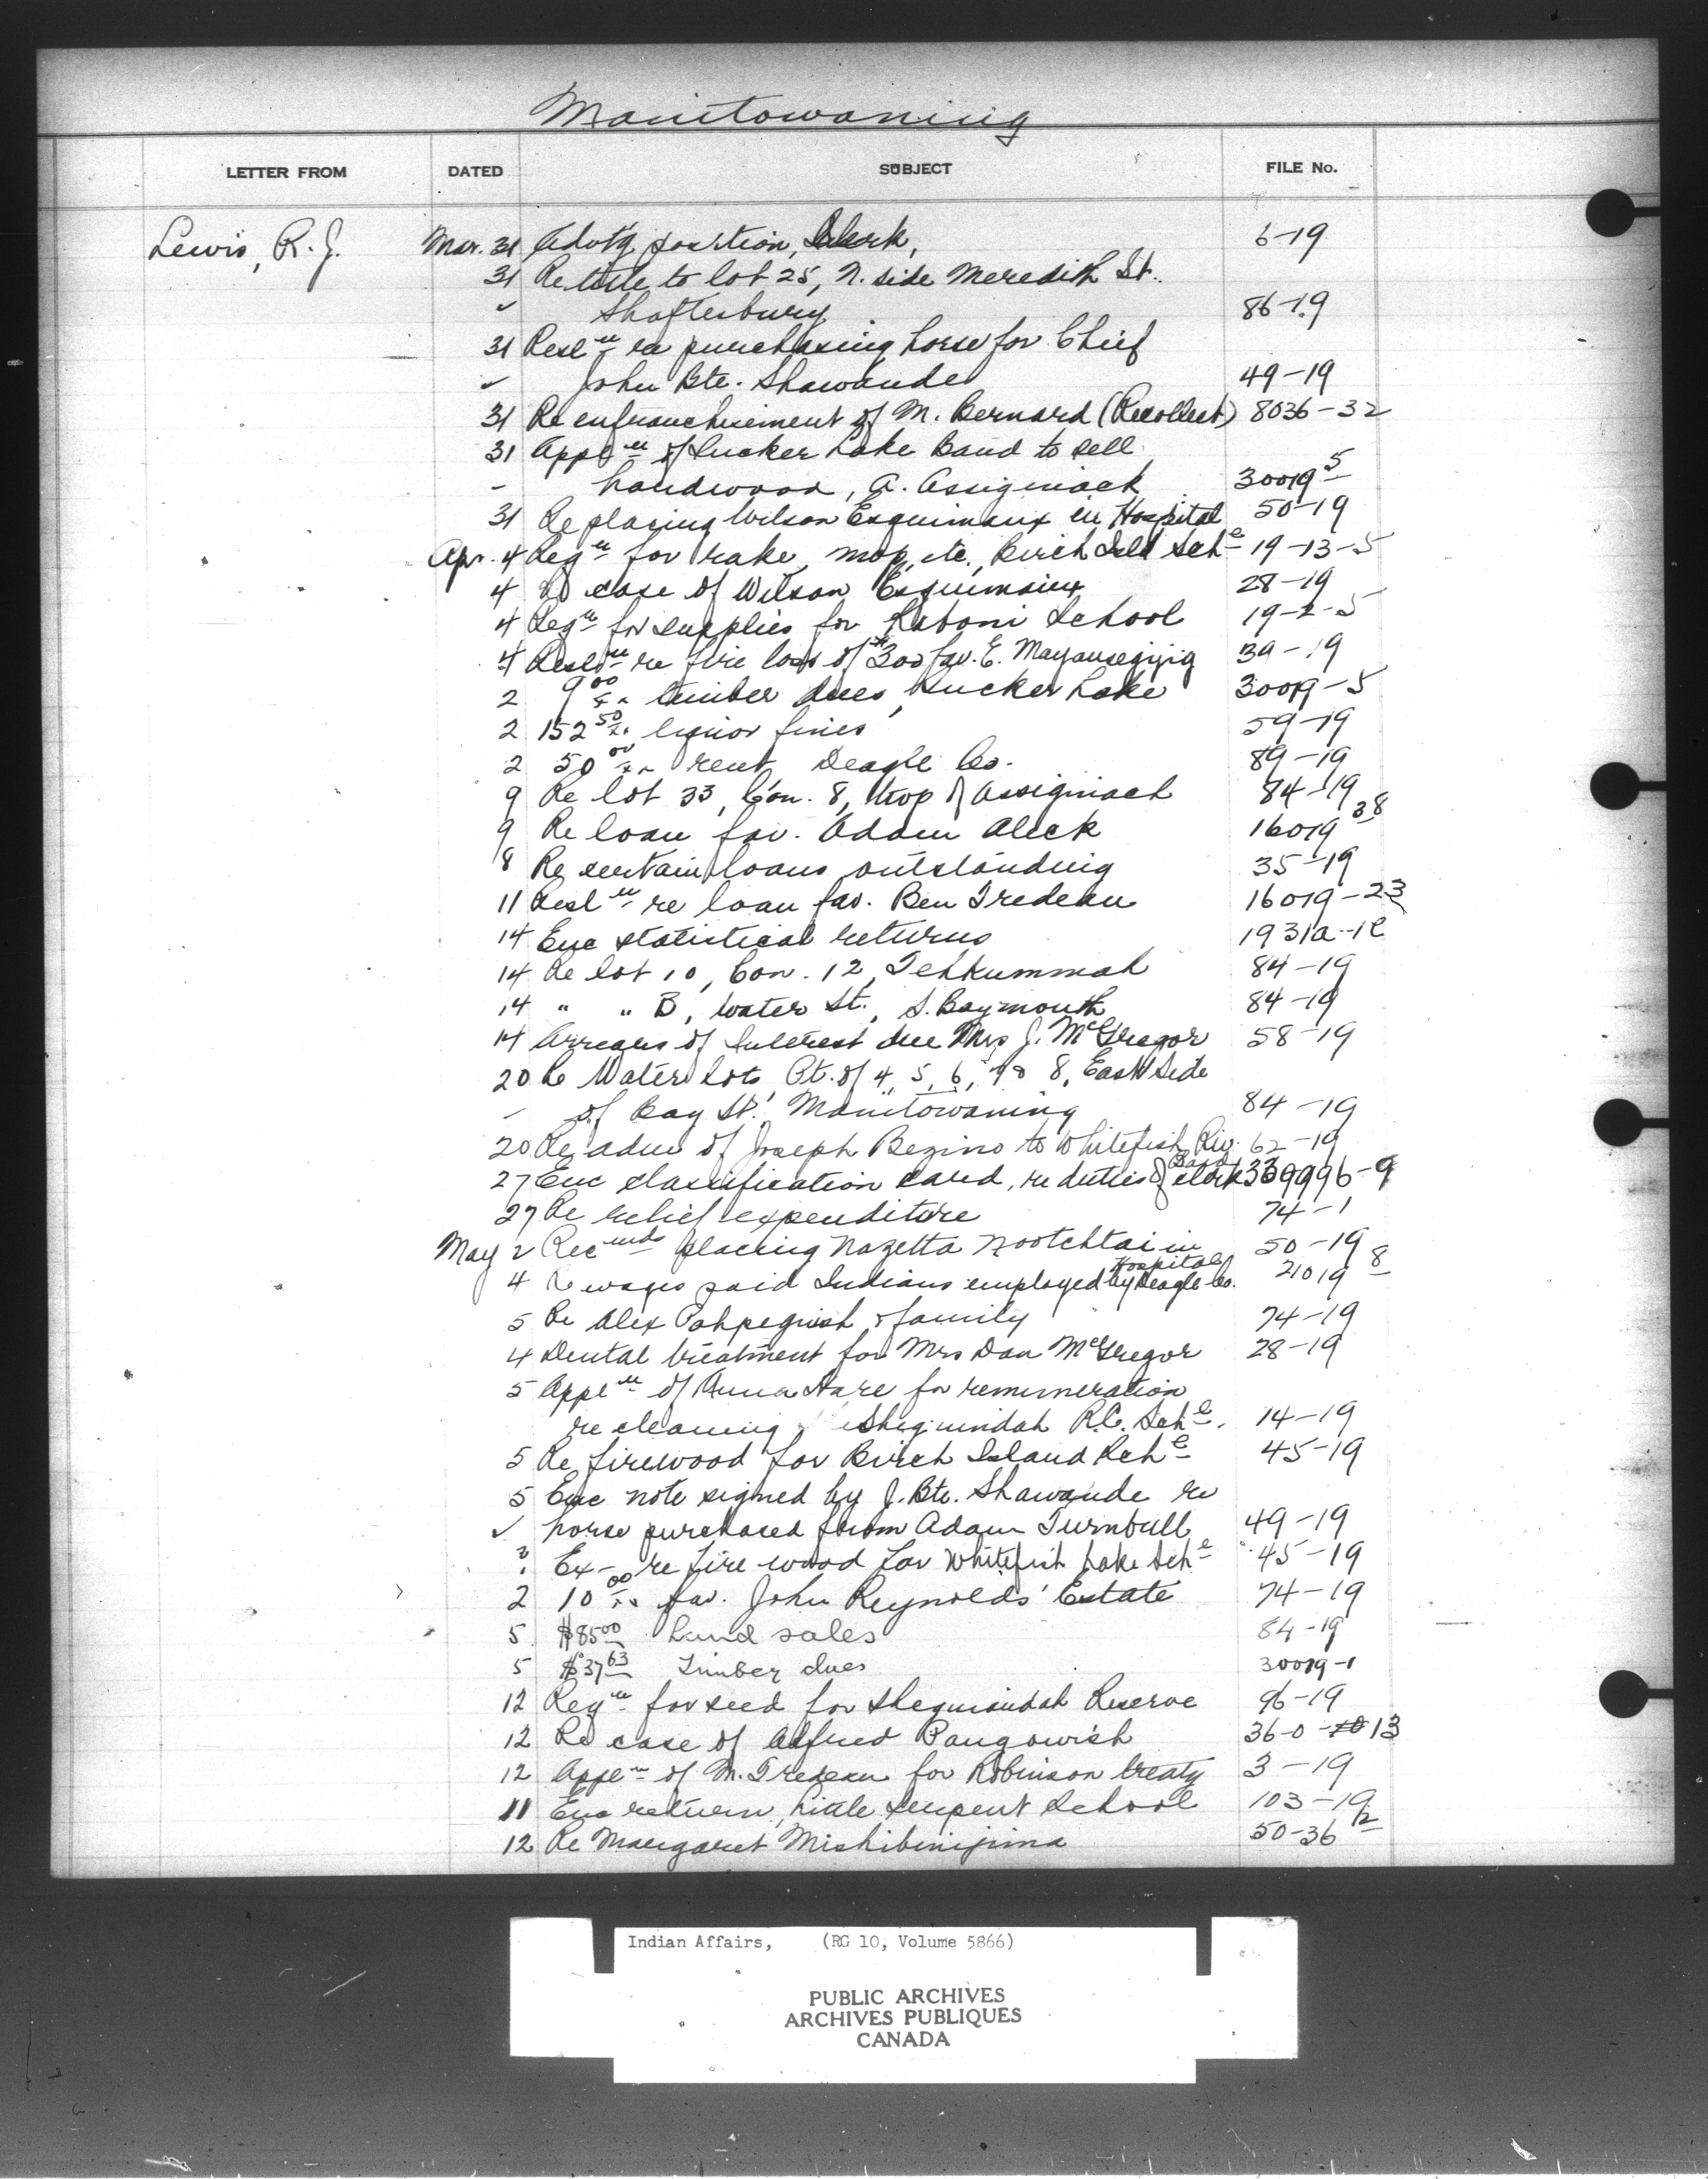 Manitowaning
LETTER FROM DATED SUBJECT FILE No.
Lewis, R. J. Mar. 31 Advtg position, Clerk, 6-19
31 Re title to lot 25, N. side Meredith St.
✓ Shaftesbury 86-19
31 Resl'n re purchasing horse for Chief
✓ John Bte. Shawande 49-19
31 Re enfranchisement of M. Bernard (Recollect) 8036-32
31 Appl'n of Sucker Lake Band to sell
- hardwood, A. Assiginack 30019-5
31 Re placing Wilson Esquimaux in Hospital 50-19
Apr. 4 Reqn for rake, mop, etc., Birch Isld Schl 19-13-5
4 Re case of Wilson Esquimaux 28-19
4 Reqn for supplies for Kaboni School 19-2-5
4 Resl'n re fire loss of $300 fav. E. Mayansegijig 39-19
2 9.00 timber dues, Sucker Lake 30019-5
2 152.50 liquor fines 59-19
2 50.00 rent, Deagle Co. 89-19
9 Re lot 33, Con. 8, twp of Assiginack 84-19
9 Re loan fav. Adam Aleck 16019-38
8 Re certain loans outstanding 35-19
11 Resl'n re loan fav. Ben Tredeau 16019-23
14 Enc statistical returns
14 Re lot 10, Con. 12, Tehkummah 84-19
14 " " B, Water St., S. Baymouth 84-19
14 Arrears of Interest due Mrs J. McGregor 58-19
20 Re Water lots Pt. of 4, 5, 6, 7 & 8, East Side
- of Bay St. Manitowaning 84-19
20 Re adm of Joseph Bezino to Whitefish Riv. Band 62-19
27 Enc classification card, re duties of clerk 339996-9
27 Re relief expenditure 74-1
May 2 Recmds placing Nazetta Nootchtai in Hospital 50-19
4 Re wages paid Indians employed by Deagle Co. 21019-8
5 Re Alex Pahpeguish & family 74-19
4 Dental treatment for Mrs Dan McGregor 28-19
5 Appl'n of Anna Hare for remuneration
re cleaning Sheguindah R.C. Schl. 14-19
5 Re firewood for Birch Island Schl 45-19
5 Enc note signed by J. Bte. Shawande re
✓ horse purchased from Adam Turnbull 49-19
? Ex- re fire wood for Whitefish Lake Schl 45-19
2 10.00 fav. John Reynolds' Estate 74-19
5 $85.00 Land sales 84-19
5 $37.63 Timber dues 30019-1
12 Reqn for seed for Sheguindah Reserve 96-19
12 Re case of Alfred Pangowish 36-0-13
12 Appl'n of M. Tredeau for Robinson treaty 3-19
11 Enc return, Little Serpent School 103-19
12 Re Margaret Mishibinijima 50-36
Indian Affairs, (RG 10, Volume 5866)
PUBLIC ARCHIVES
ARCHIVES PUBLIQUES
CANADA